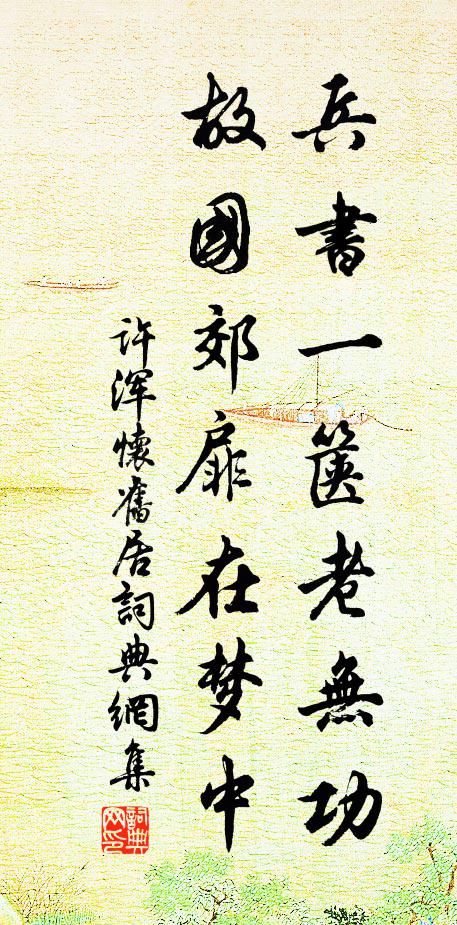 兵書一篋老無功
故國郊扉在梦中
许浑懷舊居詞典網集
詞典
网印